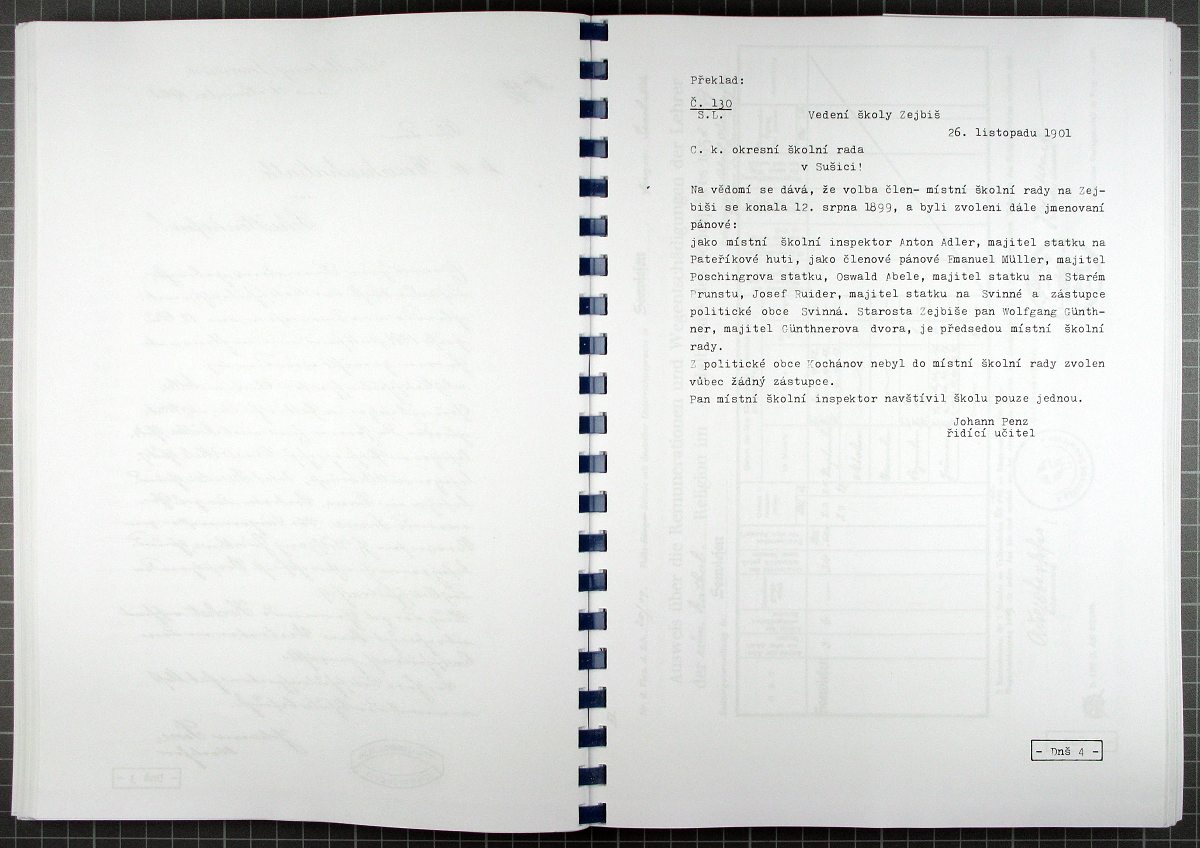 Překlad:
Č. 130
S.L.
Vedení školy Zejbiš
26. listopadu 1901
C. k. okresní školní rada
v Sušici!
Na vědomí se dává, že volba člen- místní školní rady na Zej-
biši se konala 12. srpna 1899, a byli zvoleni dále jmenovaní
pánové:
jako místní školní inspektor Anton Adler, majitel statku na
Pateříkové huti, jako členové pánové Emanuel Müller, majitel
Poschingrova statku, Oswald Abele, majitel statku na Starém
Brunstu, Josef Ruider, majitel statku na Svinné a zástupce
politické obce Svinná. Starosta Zejbiše pan Wolfgang Günth-
ner, majitel Günthnerova dvora, je předsedou místní školní
rady.
Z politické obce Kochánov nebyl do místní školní rady zvolen
vůbec žádný zástupce.
Pan místní školní inspektor navštívil školu pouze jednou.
Johann Penz
řidící učitel
- Dnš 4 -